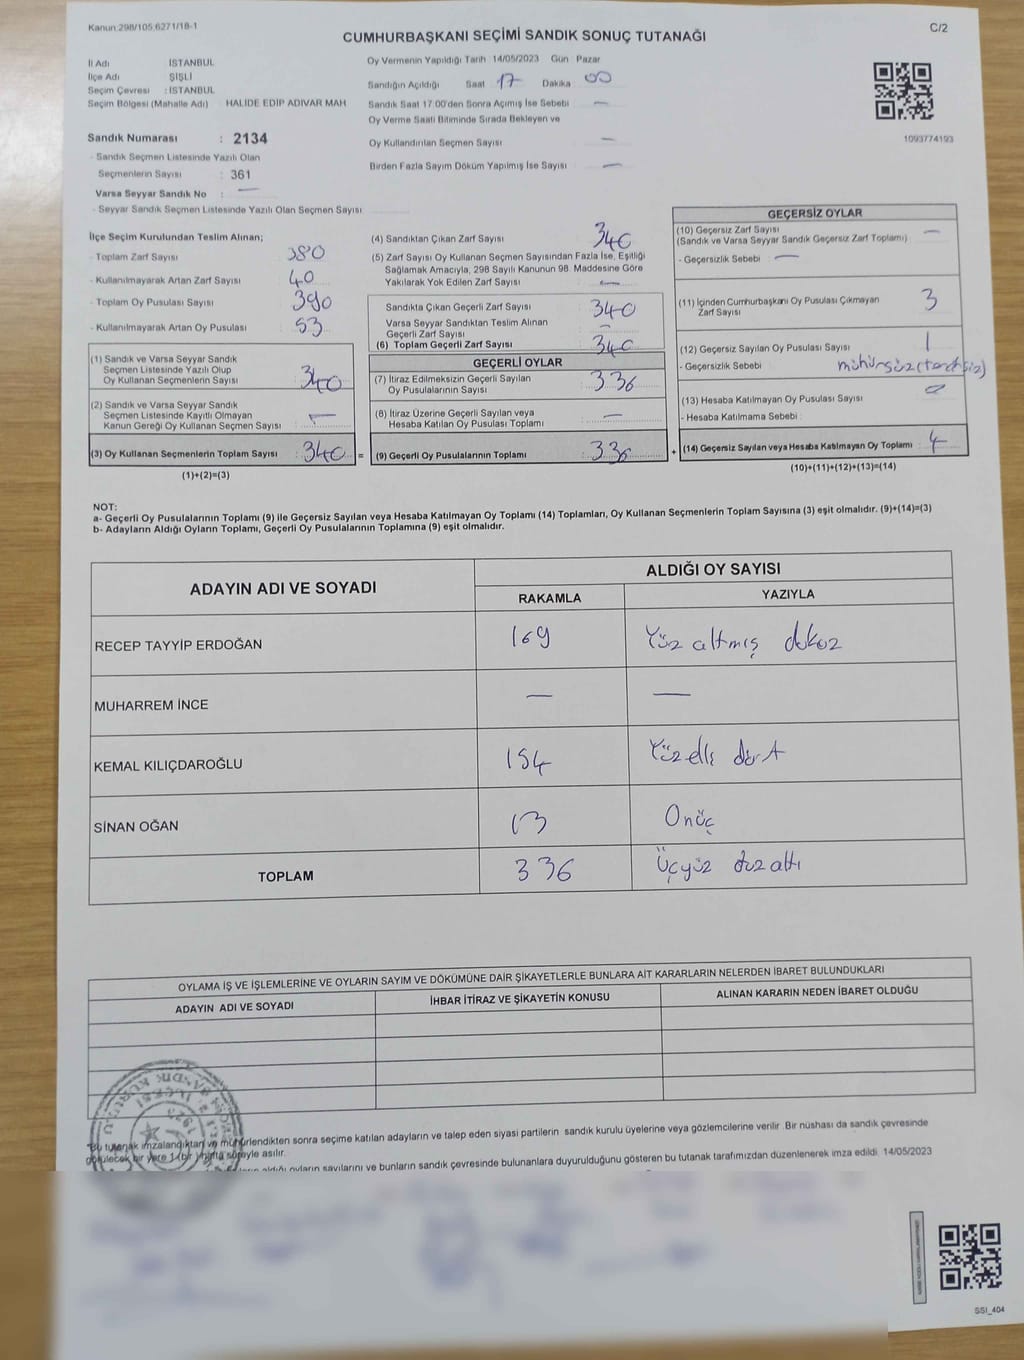 Kanun:298/105,6271/18-1
C/2
CUMHURBAŞKANI SEÇİMİ SANDIK SONUÇ TUTANAĞI
İl Adı İSTANBUL
İlçe Adı ŞİŞLİ
Seçim Çevresi : İSTANBUL
Seçim Bölgesi (Mahalle Adı) HALİDE EDİP ADIVAR MAH
Sandık Numarası : 2134
- Sandık Seçmen Listesinde Yazılı Olan
Seçmenlerin Sayısı : 361
Varsa Seyyar Sandık No : —
- Seyyar Sandık Seçmen Listesinde Yazılı Olan Seçmen Sayısı
Oy Vermenin Yapıldığı Tarih 14/05/2023 Gün Pazar
Sandığın Açıldığı Saat 17 Dakika 00
Sandık Saat 17:00'den Sonra Açımış İse Sebebi —
Oy Verme Saati Bitiminde Sırada Bekleyen ve
Oy Kullandırılan Seçmen Sayısı —
Birden Fazla Sayım Döküm Yapılmış İse Sayısı —
1093774193
İlçe Seçim Kurulundan Teslim Alınan;
- Toplam Zarf Sayısı 380
- Kullanılmayarak Artan Zarf Sayısı 40
- Toplam Oy Pusulası Sayısı 390
- Kullanılmayarak Artan Oy Pusulası 53
(1) Sandık ve Varsa Seyyar Sandık
Seçmen Listesinde Yazılı Olup
Oy Kullanan Seçmenlerin Sayısı : 340
(2) Sandık ve Varsa Seyyar Sandık
Seçmen Listesinde Kayıtlı Olmayan
Kanun Gereği Oy Kullanan Seçmen Sayısı : —
(3) Oy Kullanan Seçmenlerin Toplam Sayısı : 340 =
(1)+(2)=(3)
(4) Sandıktan Çıkan Zarf Sayısı 340
(5) Zarf Sayısı Oy Kullanan Seçmen Sayısından Fazla İse, Eşitliği
Sağlamak Amacıyla, 298 Sayılı Kanunun 98. Maddesine Göre
Yakılarak Yok Edilen Zarf Sayısı —
Sandıkta Çıkan Geçerli Zarf Sayısı 340
Varsa Seyyar Sandıktan Teslim Alınan
Geçerli Zarf Sayısı —
(6) Toplam Geçerli Zarf Sayısı : 340
GEÇERLİ OYLAR
(7) İtiraz Edilmeksizin Geçerli Sayılan
Oy Pusulalarının Sayısı : 336
(8) İtiraz Üzerine Geçerli Sayılan veya
Hesaba Katılan Oy Pusulası Toplamı —
(9) Geçerli Oy Pusulalarının Toplamı : 336 +
GEÇERSİZ OYLAR
(10) Geçersiz Zarf Sayısı
(Sandık ve Varsa Seyyar Sandık Geçersiz Zarf Toplamı) —
- Geçersizlik Sebebi : —
(11) İçinden Cumhurbaşkanı Oy Pusulası Çıkmayan
Zarf Sayısı 3
(12) Geçersiz Sayılan Oy Pusulası Sayısı 1
- Geçersizlik Sebebi mühürsüz
(13) Hesaba Katılmayan Oy Pusulası Sayısı
- Hesaba Katılmama Sebebi :
(14) Geçersiz Sayılan veya Hesaba Katılmayan Oy Toplamı : 4
(10)+(11)+(12)+(13)=(14)
NOT:
a- Geçerli Oy Pusulalarının Toplamı (9) ile Geçersiz Sayılan veya Hesaba Katılmayan Oy Toplamı (14) Toplamları, Oy Kullanan Seçmenlerin Toplam Sayısına (3) eşit olmalıdır. (9)+(14)=(3)
b- Adayların Aldığı Oyların Toplamı, Geçerli Oy Pusulalarının Toplamına (9) eşit olmalıdır.
ADAYIN ADI VE SOYADI
ALDIĞI OY SAYISI
RAKAMLA YAZIYLA
RECEP TAYYİP ERDOĞAN 169 Yüz altmış dokuz
MUHARREM İNCE — —
KEMAL KILIÇDAROĞLU 154 Yüzelli dört
SİNAN OĞAN 13 Onüç
TOPLAM 336 Üçyüz otuz altı
OYLAMA İŞ VE İŞLEMLERİNE VE OYLARIN SAYIM VE DÖKÜMÜNE DAİR ŞİKAYETLERLE BUNLARA AİT KARARLARIN NELERDEN İBARET BULUNDUKLARI
ADAYIN ADI VE SOYADI İHBAR İTİRAZ VE ŞİKAYETİN KONUSU ALINAN KARARIN NEDEN İBARET OLDUĞU
*Bu tutanak imzalandıktan ve mühürlendikten sonra seçime katılan adayların ve talep eden siyasi partilerin sandık kurulu üyelerine veya gözlemcilerine verilir. Bir nüshası da sandık çevresinde
görülecek bir yere 1 (bir) hafta süreyle asılır.
aldığı oyların sayılarını ve bunların sandık çevresinde bulunanlara duyurulduğunu gösteren bu tutanak tarafımızdan düzenlenerek imza edildi. 14/05/2023
SSI_404